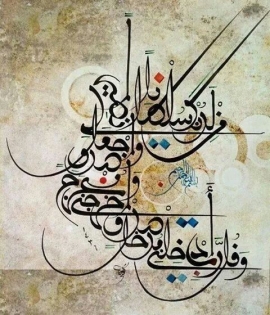 وَقُل رَّبِّ أَدْخِلْنِي مُدْخَلَ صِدْقٍ
وَأَخْرِجْنِي مُخْرَجَ
صِدْقٍ
وَاجْعَل لِّي
مِن لَّدُنكَ سُلْطَانًا نَّصِيرًا